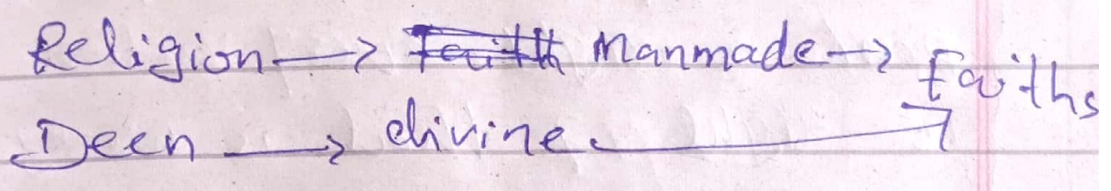 Religion → Faith Manmade → faiths
Deen → divine →